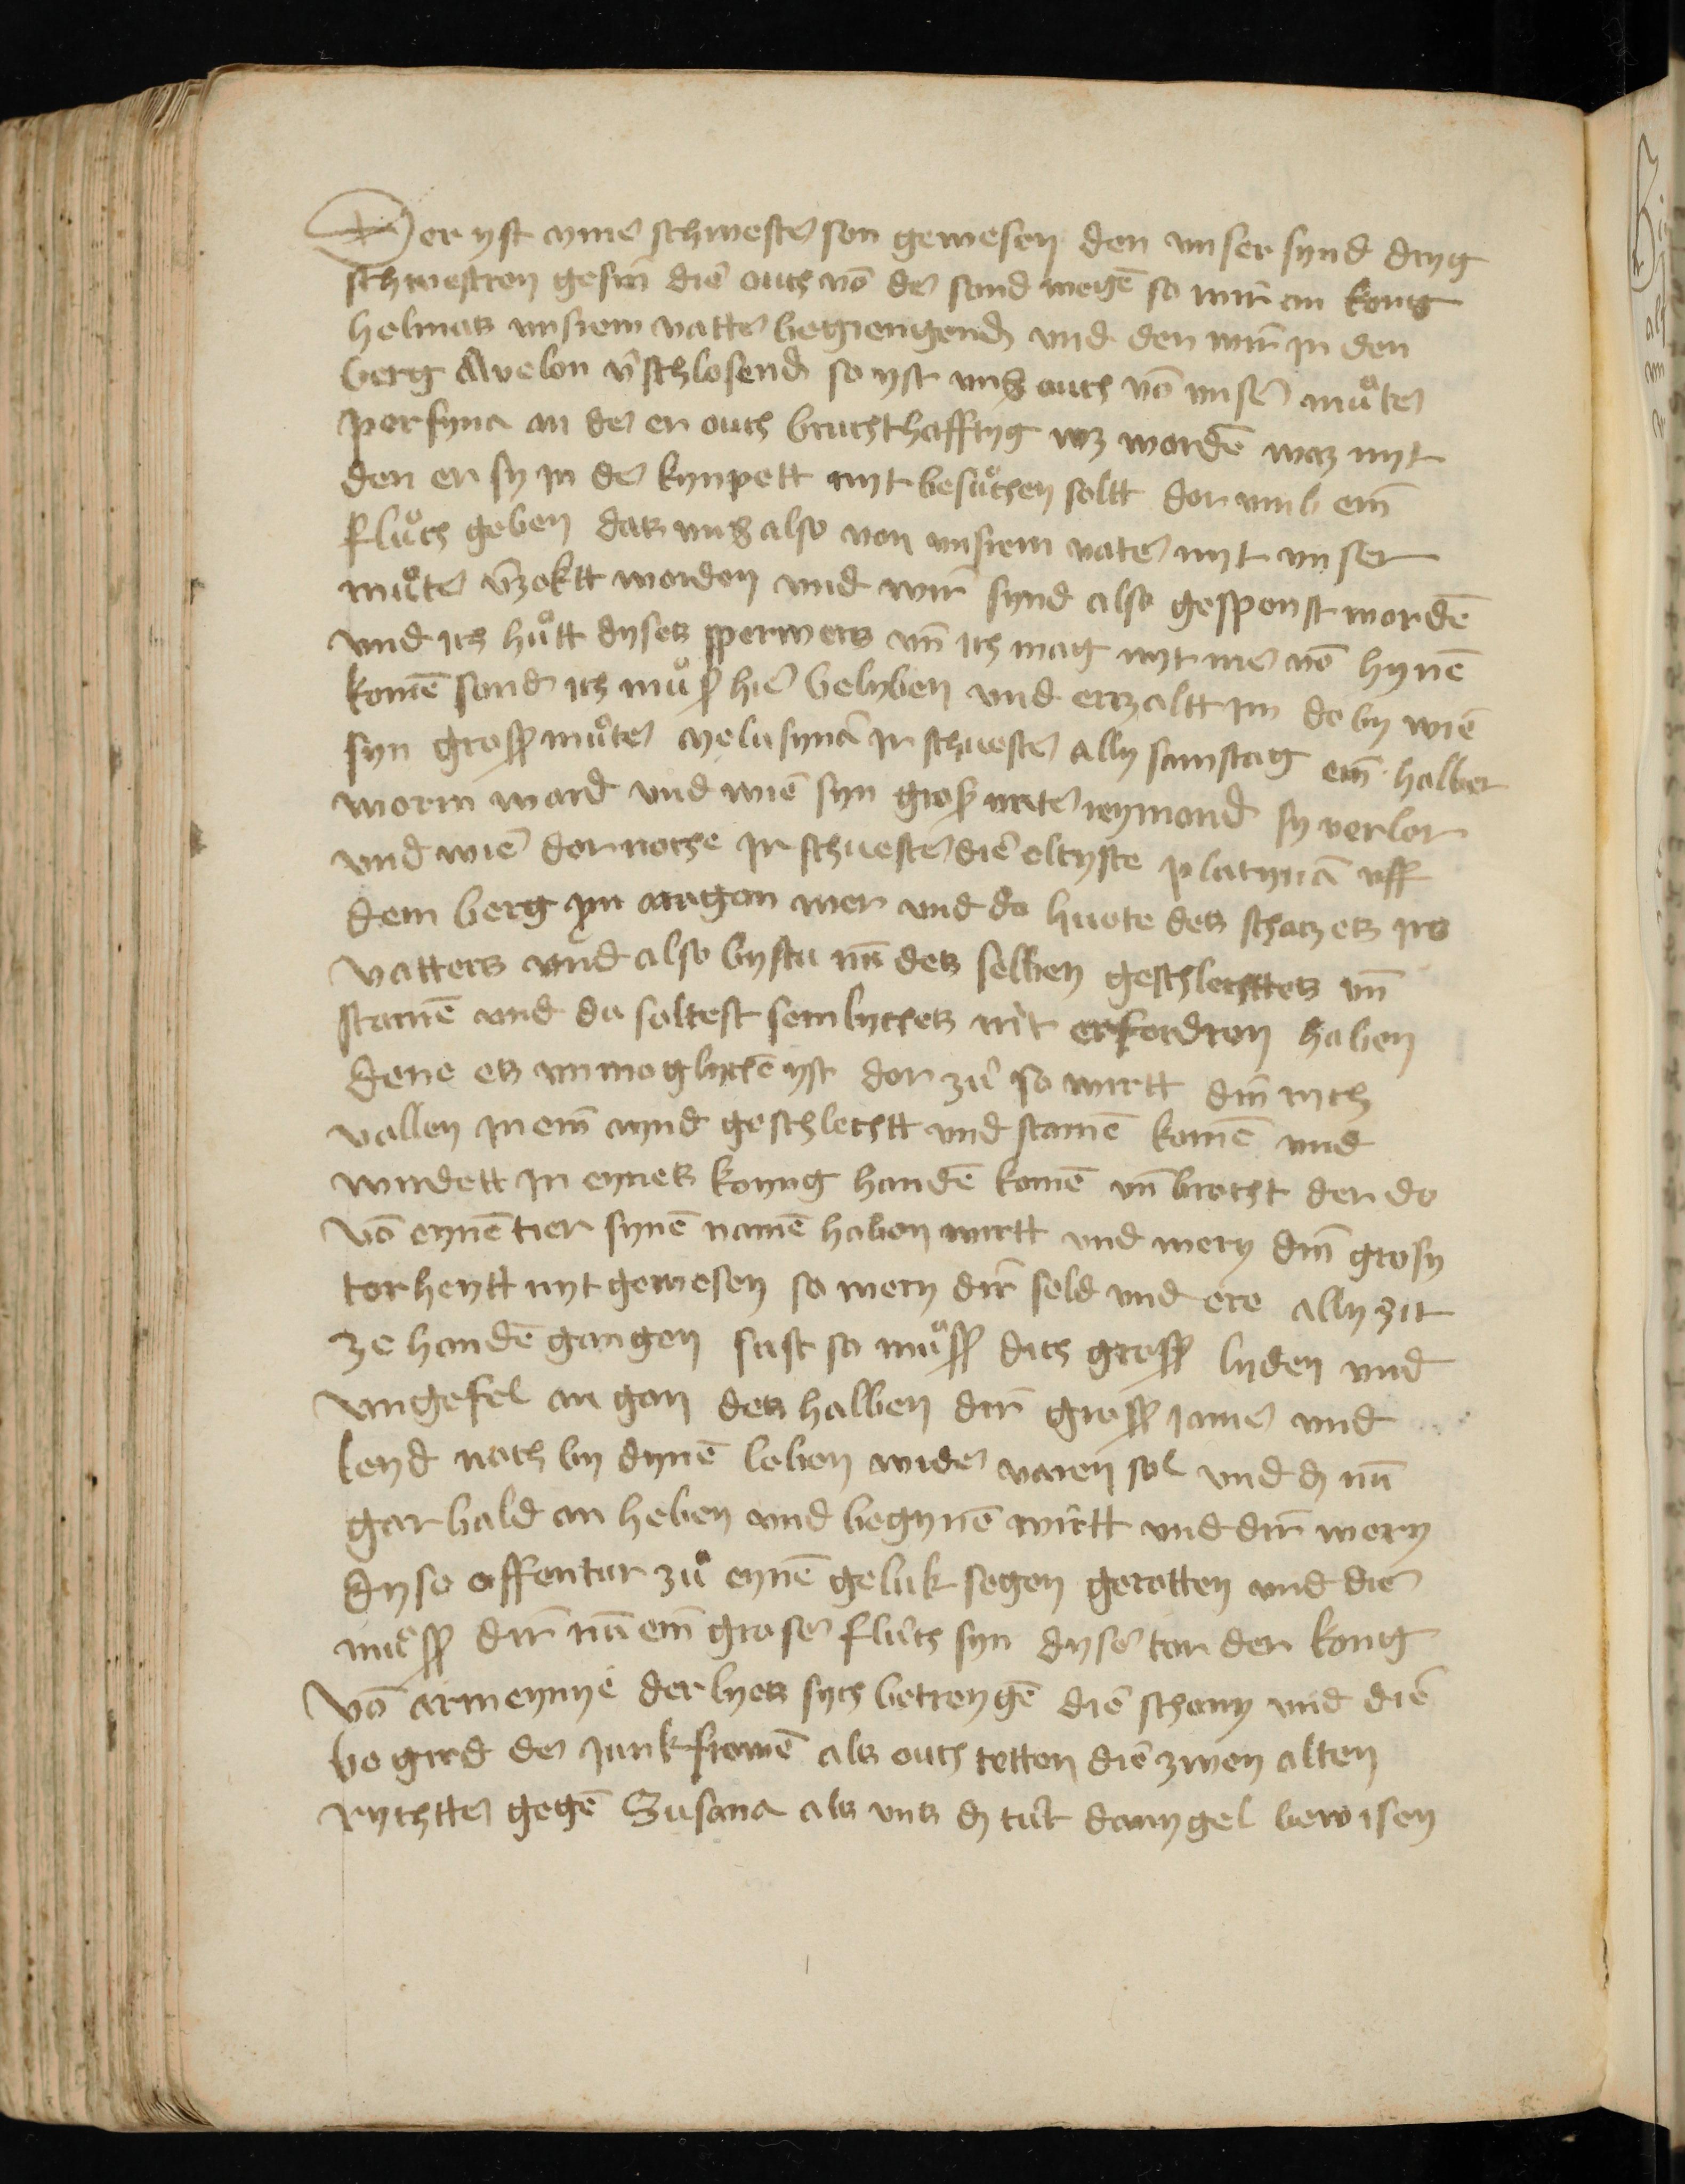 Der yst myner schwester son gewesen den unser synd dryg
schwestren gesin die ouch vō der sond wegē so wir an kong
helmas unsrem vatter begiengend und den wir in den
berg Avelon v̄schlosend so yst uns ouch vō unser muͦter
persyna an der er ouch bruchhafftyg wz wordē waz myt
den er sy in der kynpett nyt besuͦchen soltt dor umb ein̄
fluͦch geben das uns also von unsrem vater myt unser
muͦter v̄zoktt worden und wir synd also gesponst wordē
und ich huͦtt dyses sperwers un̄ ich mag nyt me vō hynē
komē sond ich muͦß hie belyben und erzaltt im do by wie
syn groß muͦter melusynā ir schuester ally samstag ein̄ halber
worm ward und wie syn groß vater reymond sy verlor
und wie dornoche ir schuester die eltyste platynā uff
dem berg ym aragon wer und do huote des schatzes irs
vatters und also bystu nū des selben geschlechttes un̄
stamē und du soltest semlyches nit erfordren haben
dene es unmoglychē yst dor zuͦ so wirtt din̄ rych
vallen in ein̄ mynd geschlechtt und stamē komē und
wirdett in eynes koyng handē komē un̄ brocht der do
vō eynē tier synē namē haben wirtt und wery din̄ grosy
torheytt nyt gewesen so wery dir seld und ere ally zit
ze handē gangen sust so muͦß dich groß lyden und
ungefel an gan des halben dir groß jamer und
leyd noch by dynē leben wider varen sol und dz nū
gar bald an heben und begynē wirtt und dir wery
dyse offentur zuͦ eynē geluk segen gerotten und die
muͦß dir nū ein̄ groser fluͦch syn dyser tor der kong
vō armenye der lyes sych betreygē die schony und die
begird der junkfrowē als ouch tetten die zwen alten
rychtter gegē Susana als uns dz tuͦt danygel bewisen